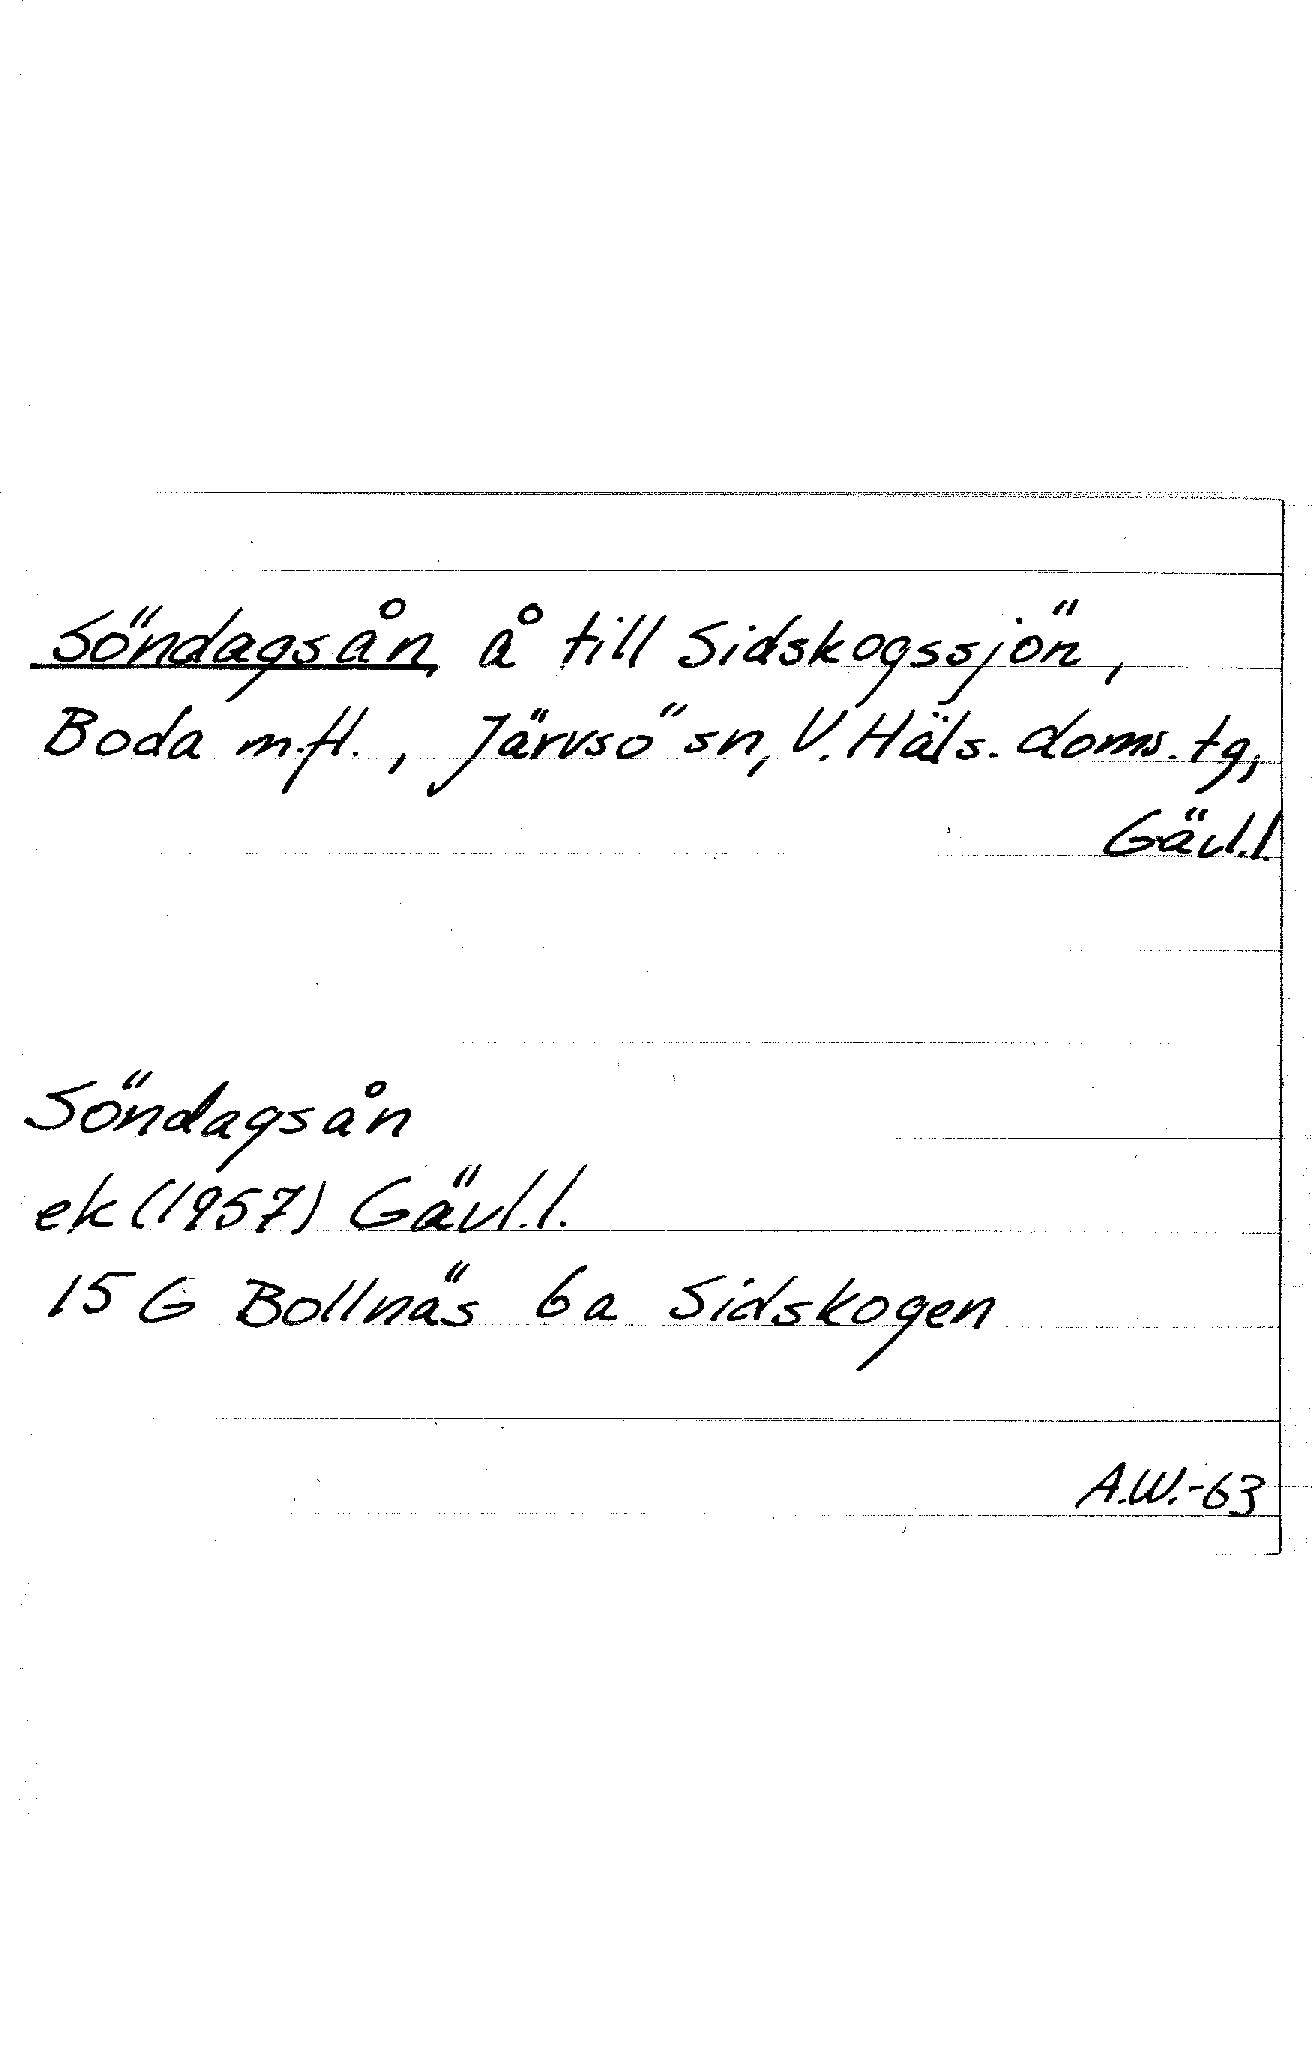 Söndagsån å till Sidskogssjön,
Boda m.fl., Järvsö sn, V. Häls. doms. tg,
Gävl.l.
Söndagsån
ek (1957) Gävl.l.
15 G Bollnäs 6a Sidskogen
A.W.-63